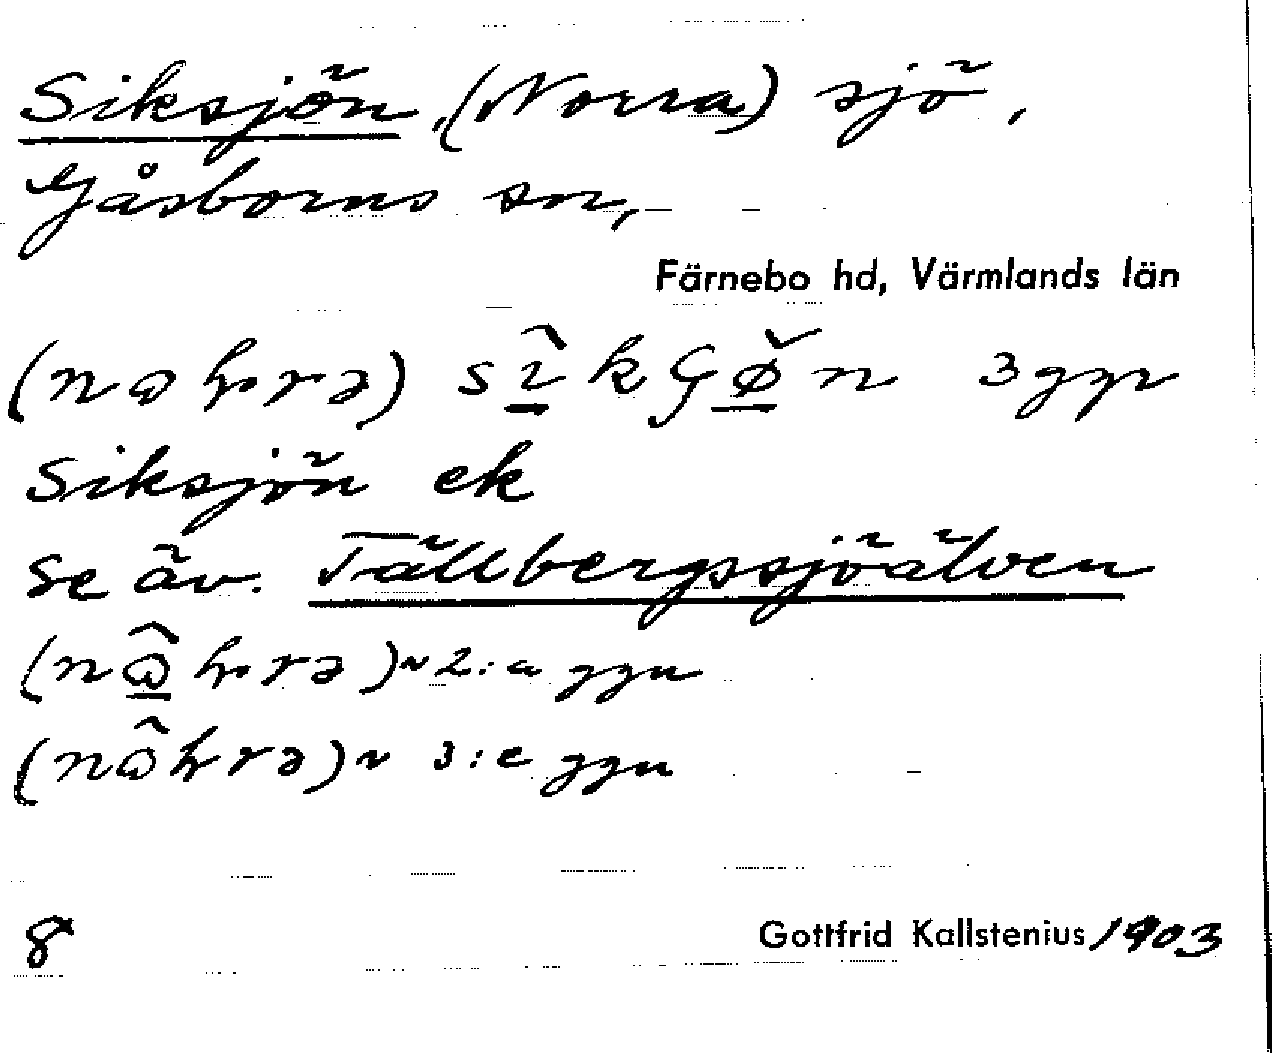 Siksjön, (Norra) sjö,
Gåsborns sn,
Färnebo hd, Värmlands län
3 ggr
Siksjön ek
Se äv. Tällbergssjöälven
2:a ggn
3:e ggn
8 Gottfrid Kallstenius 1903